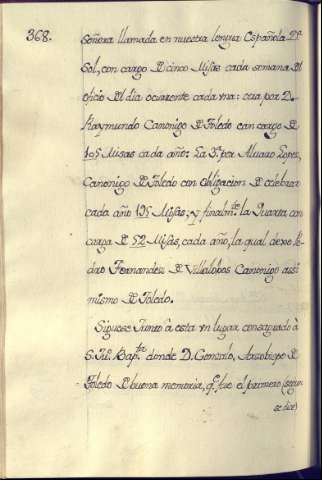 368.
Señora llamada en nuestra lengua Española Dª
Sol, con cargo de cinco Misas cada semana del
oficio del dia ocurrente cada una: otra por D.
Raymundo Canonigo de Toledo con cargo de
105 Misas cada año: La 3ª por Alvaro Lopez,
Canonigo de Toledo con obligacion de celebrar
cada año 195 Misas; y finalmte. la Quarta con
cargo de 52 Misas, cada año, la qual dexo Pe-
dro Fernandez de Villalobos Canonigo assi
mismo de Toledo.
Siguese Junto à esta un lugar consagrado à
S. Ju. Bapta. donde D. Gonzalo, Arzobispo de
Toledo de buena memoria, qe. fue el primero (segun
se dice)